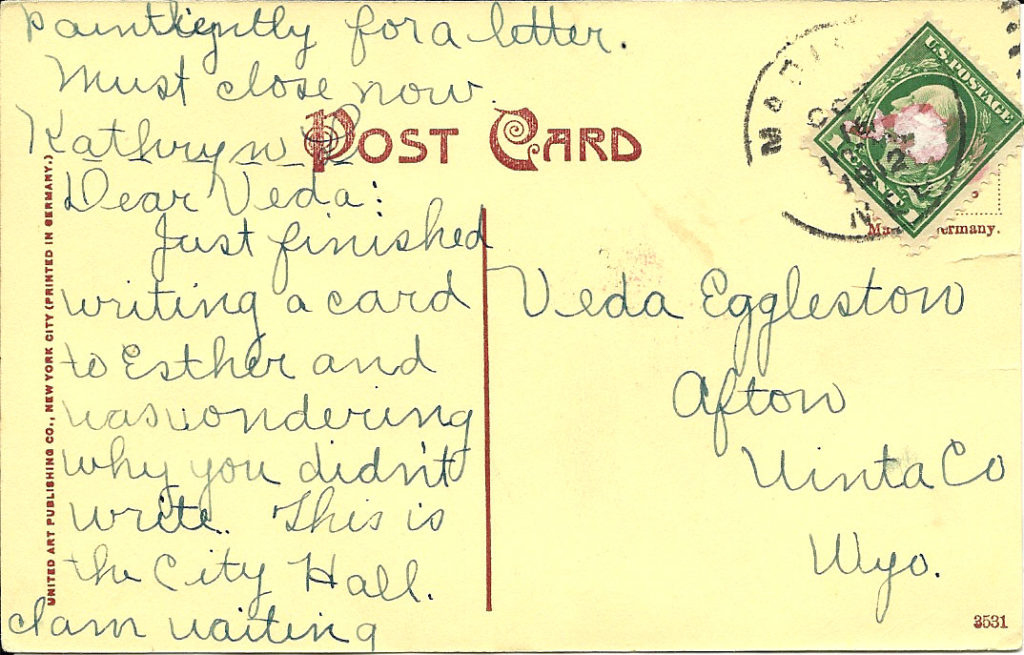 paintiently for a letter.
Must close now.
Kathryn
POST CARD
U.S. POSTAGE
Dear Veda:
Just finished
writing a card
to Esther and
was wondering
why you didn't
write. This is
the City Hall.
I am waiting
Veda Eggleston
Afton
Uinta Co
Wyo.
UNITED ART PUBLISHING CO., NEW YORK CITY (PRINTED IN GERMANY.)
3531